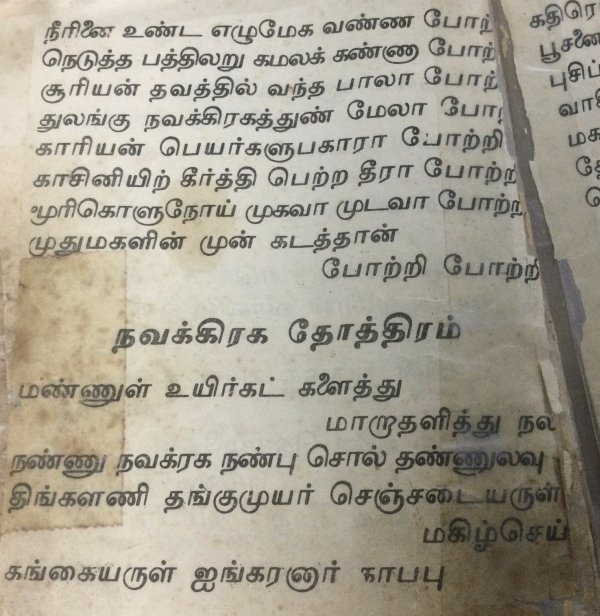 நீரினை உண்ட எழுமேக வண்ண போற்
நெடுத்த பத்திலறு கமலக் கண்ணு போற்
சூரியன் தவத்தில் வந்த பாலா போற்
துலங்கு நவக்கிரகத்துண் மேலா போ
காரியன் பெயர்களுபகாரா போற்றி
காசினியிற் கீர்த்தி பெற்ற தீரா போற்ற
மூரிகொளுநோய் முகவா முடவா போற்ற
முதுமகளின் முன் கடத்தான்
போற்றி போற்றி
நவக்கிரக தோத்திரம்
மண்ணுள் உயிர்கட் களைத்து
மாறாதளித்து நல
நண்ணு நவக்ரக நண்பு சொல் தண்ணுலவு
திங்களணி தங்குமுயர் செஞ்சடையருள்
மகிழ்செய்
கங்கையருள் ஐங்கரனார் காப்பு
கதிரொ
பூசனை
புசிப்
வாசி
மக